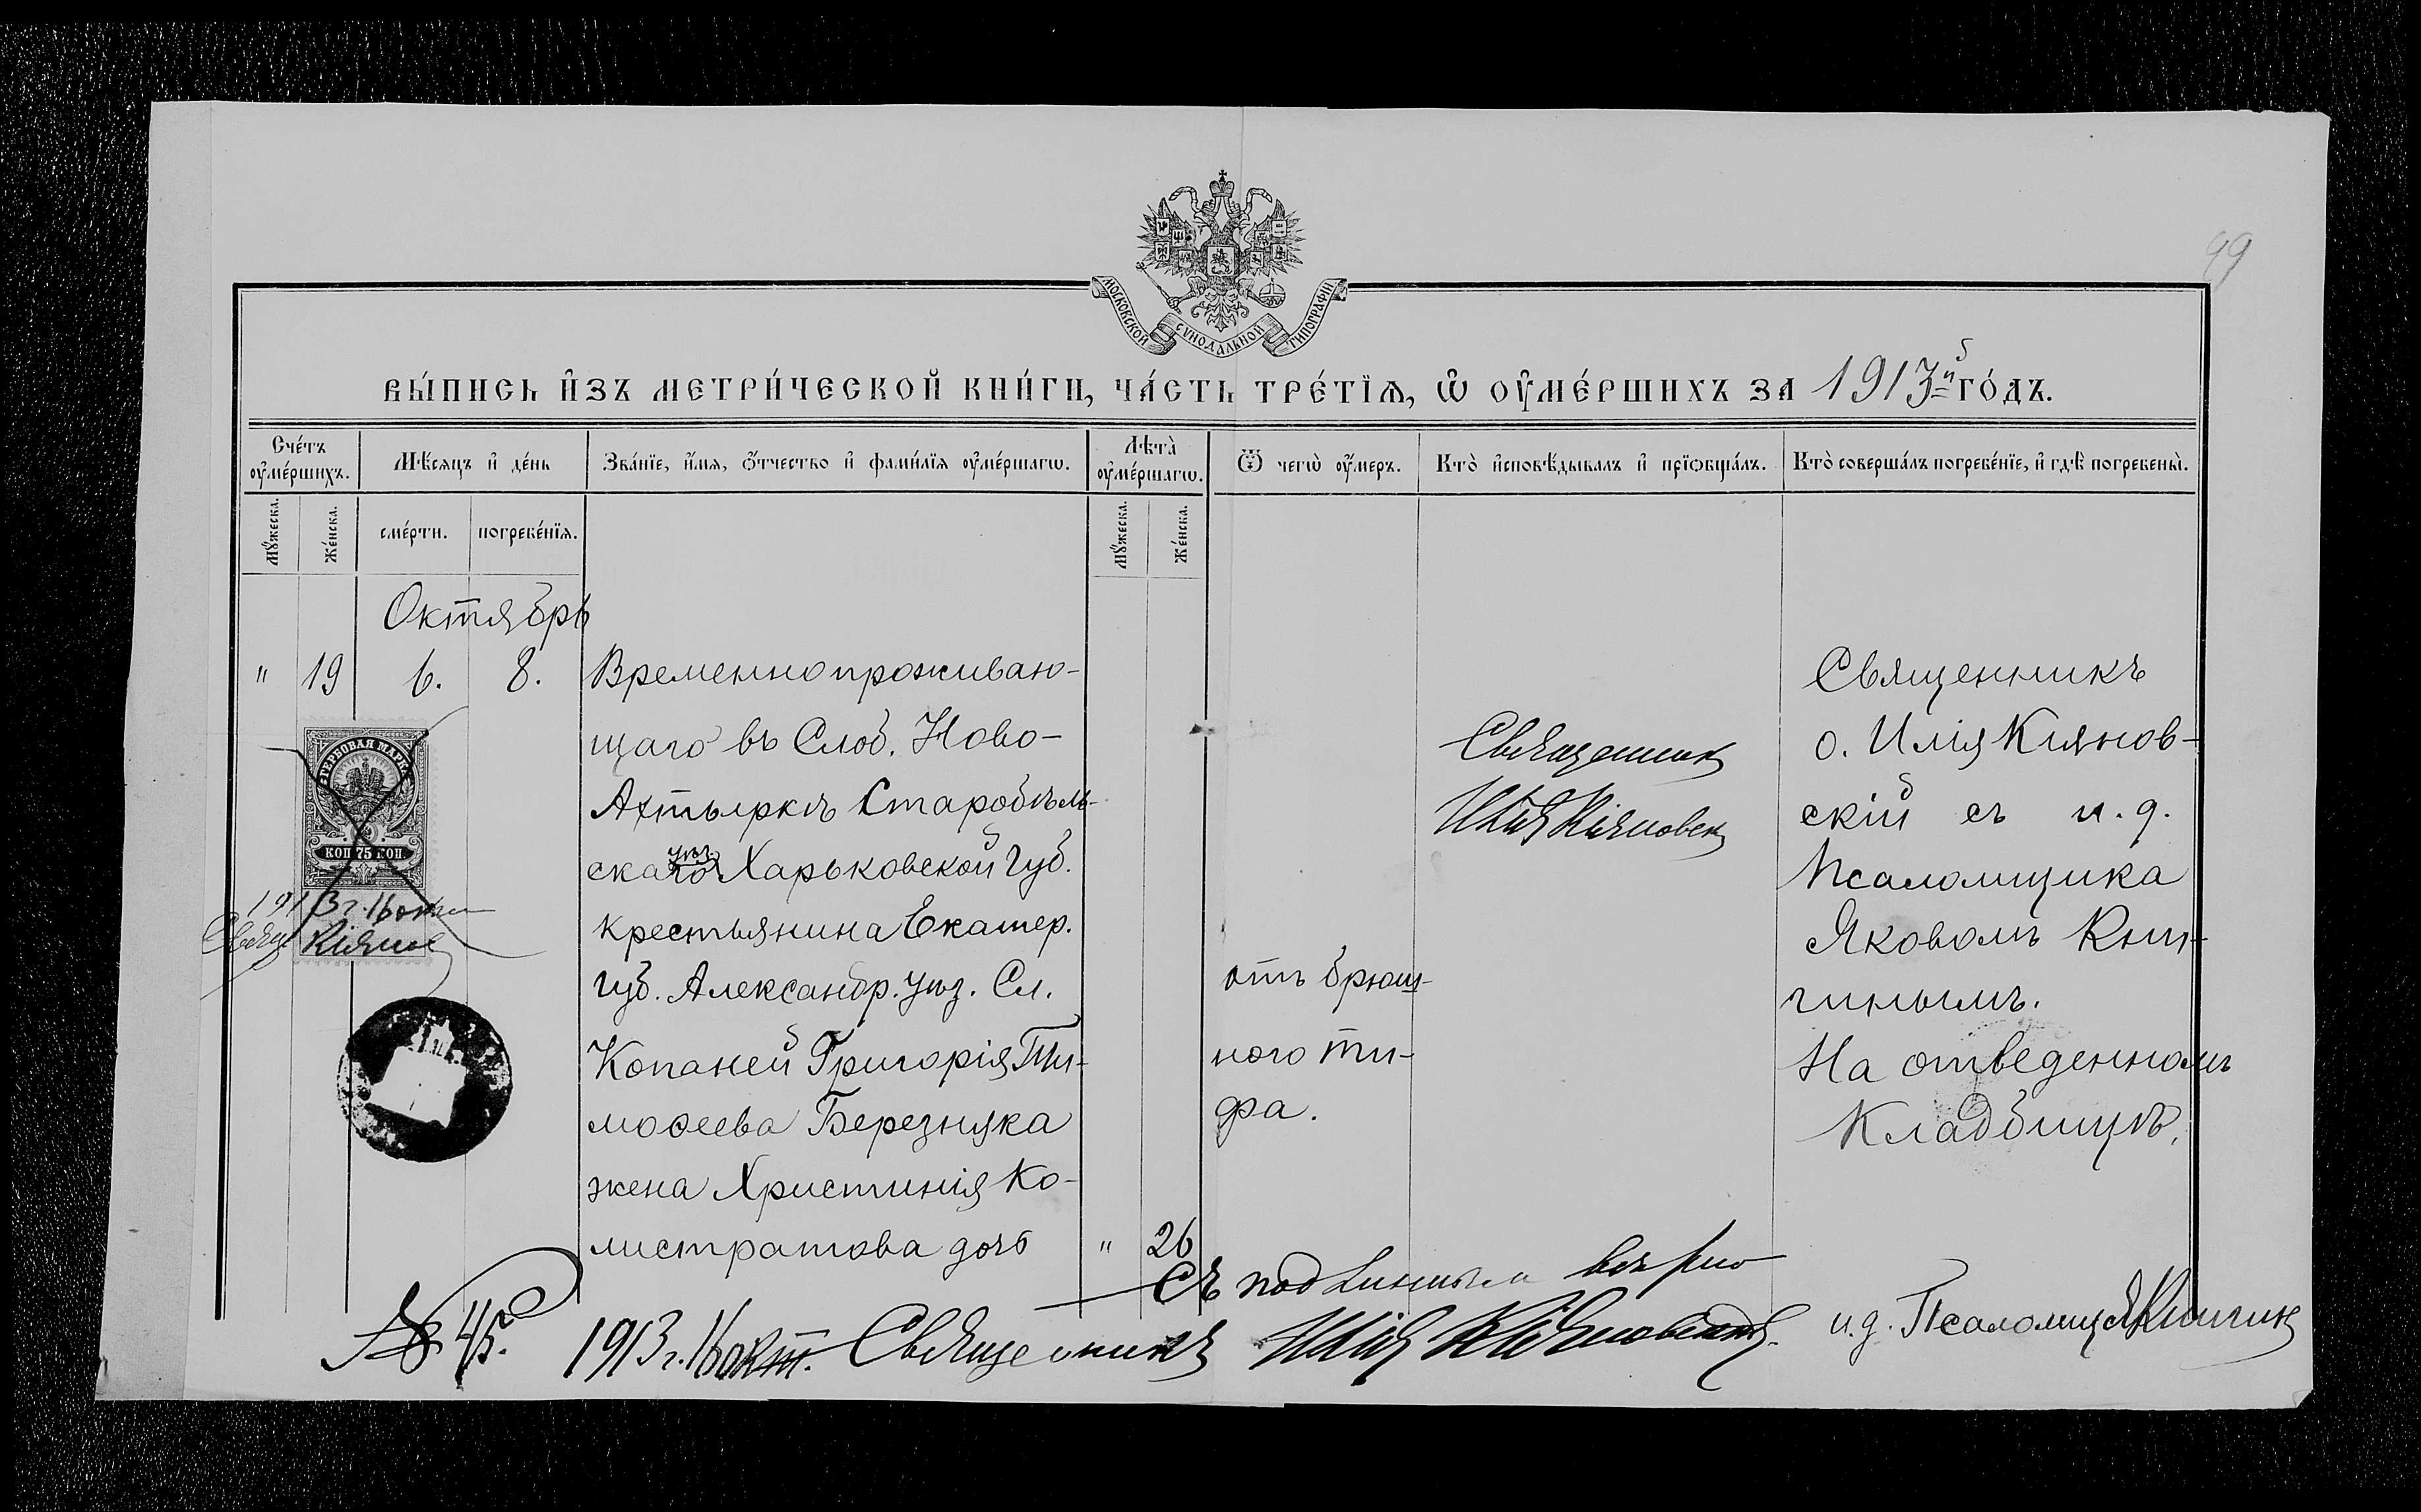 99
МОСКОВСКОЙ СѴНОДАЛЬНОЙ ТИПОГРАФІИ
ВЫ́ПИСЬ И҆ЗЪ МЕТРИ́ЧЕСКОЙ КНИ́ГИ, ЧА́СТЬ ТРЕ́ТЇѦ, Ѽ ОУ҆МЕ́РШИХЪ ЗА 1913й ГО́ДЪ.
Сче́тъ оу҆ме́ршихъ.
Мѣ́сяцъ и҆ де́нь
Зва́нїе, и҆́мя, ѻ҆́тчество и҆ фами́лїя оу҆ме́ршагѡ.
Лѣта̀ оу҆ме́ршагѡ.
Ѿ чегѡ̀ оу҆́меръ.
Кто̀ и҆сповѣ́дывалъ и҆ прїѻбща́лъ.
Кто̀ соверша́лъ погребе́нїе, и҆ гдѣ̀ погребены̀.
Мꙋ́жеска.
Же́нска.
сме́рти.
погребе́нїя.
Мꙋ́жеска.
Же́нска.
Октябрь
" 19 6. 8.
Временно проживаю-
щаго въ Слоб. Ново-
Ахтыркѣ Старобѣль-
скаго уѣз. Харьковской Губ.
крестьянина Екатер.
губ. Александр. Уѣз. Сл.
Копаней Григорія Ти-
моѳеева Березняка
жена Христинія Ка-
листратова дочь
" 26
отъ брюш-
ного ти-
фа.
Священникъ
Илія Кіяновскій
Священникъ
о. Илія Киянов-
скій съ и. д.
Псаломщика
Яковомъ Кни-
гинымъ.
На отведенномъ
Кладбищѣ.
ГЕРБОВАЯ МАРКА
КОП 75 КОП
1913 г. 16 окт
Свящ Кіянов
Съ подлинымъ вѣрно
№ 45. 1913 г. 16 окт. Священникъ Илія Кіяновскій.
и. д. Псаломщ Я Книгинъ